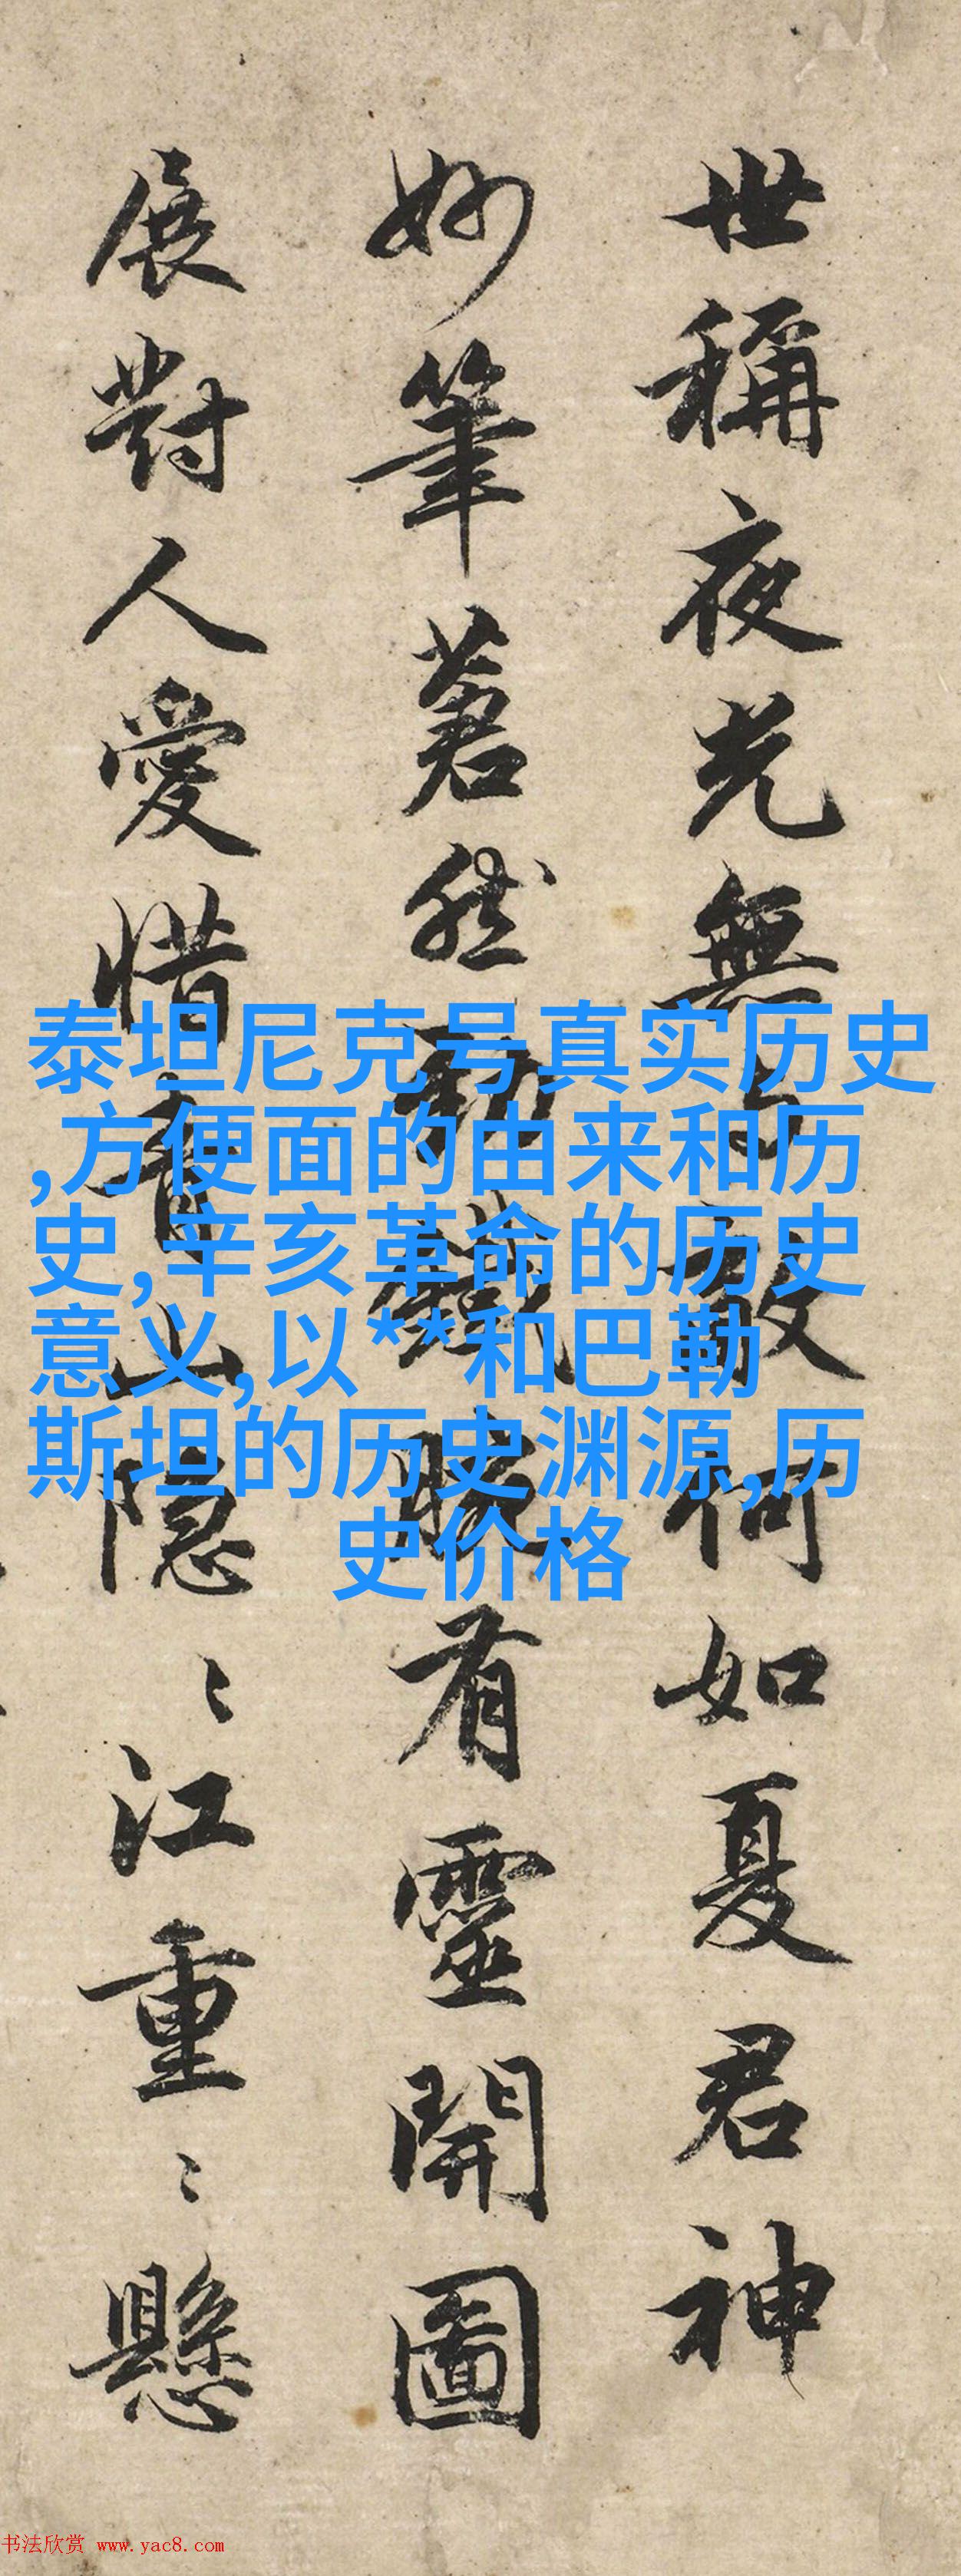 世稱夜光無与敵何如夏君神
妙筆然有靈開圖
展對人愛惜青山隱〻江重〻懸
泰坦尼克号真实历史
,方便面的由来和历
史,辛亥革命的历史
意义,以**和巴勒
斯坦的历史渊源,历
史价格
书法欣赏 www.yac8.com